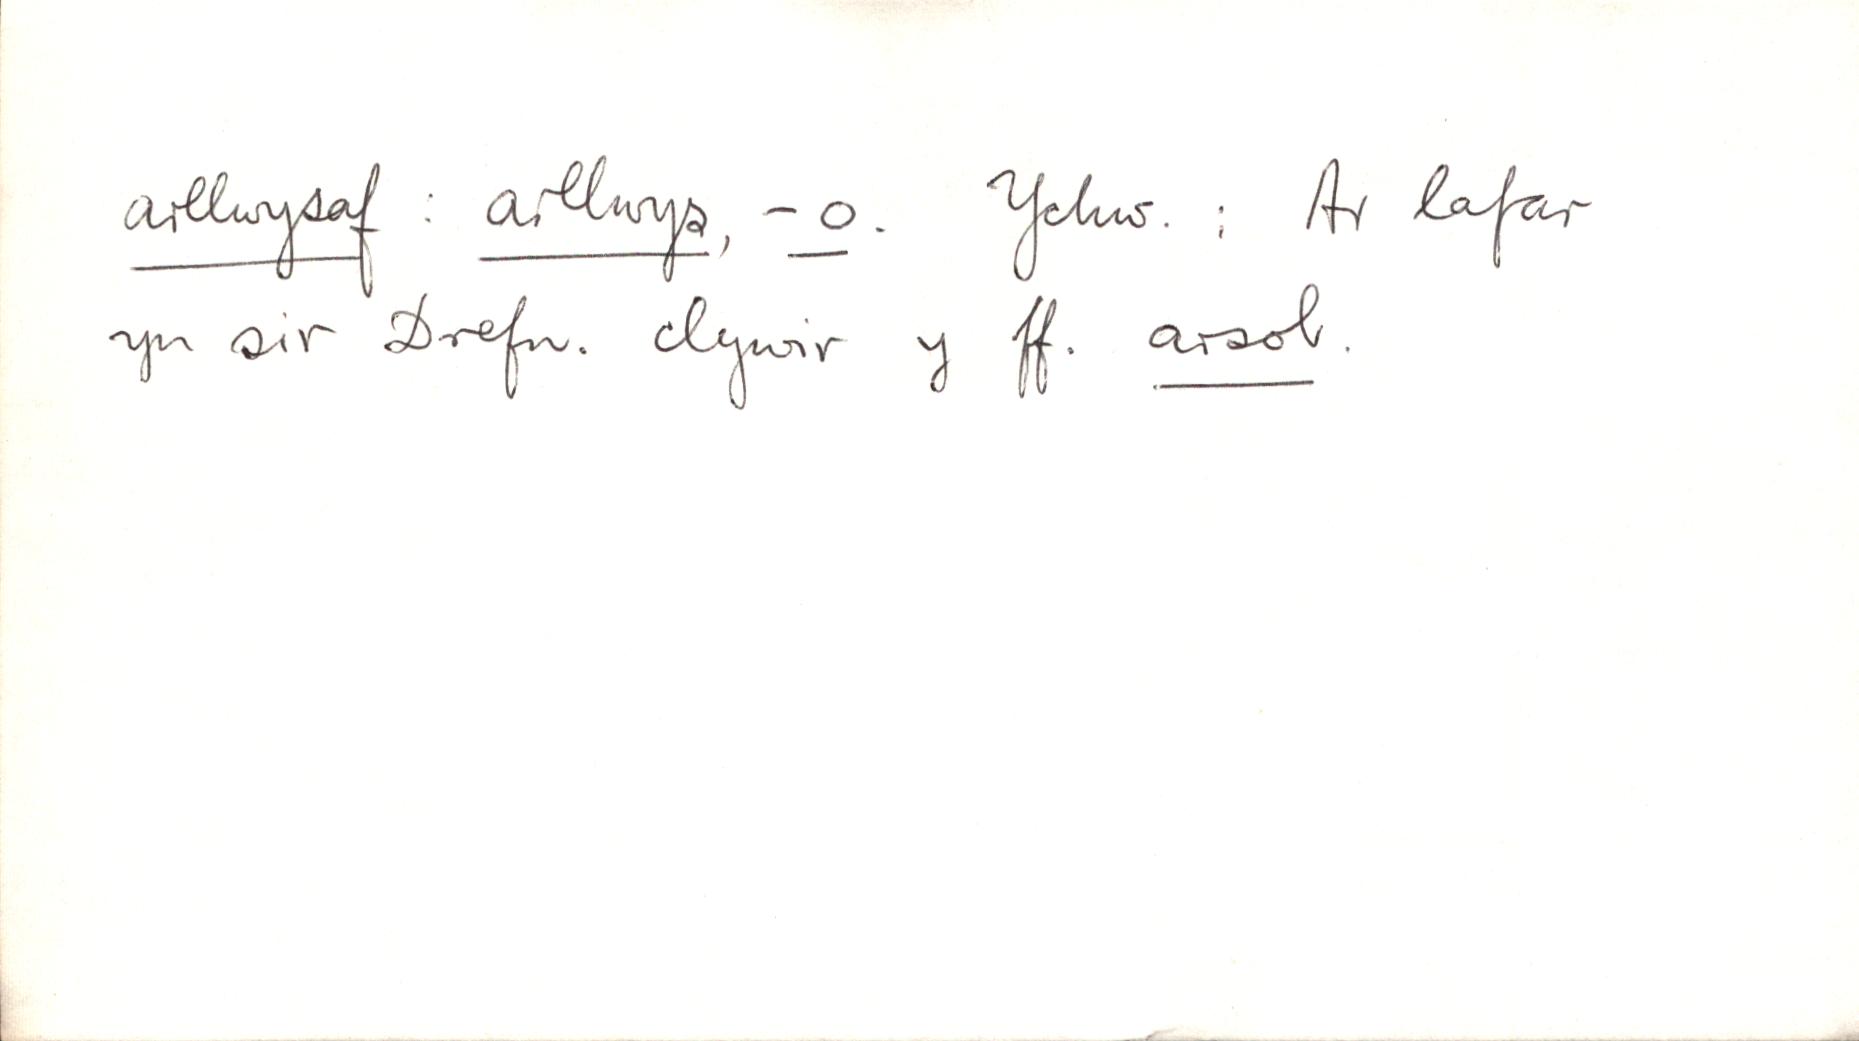 arllwysaf : arllwys, -o. Ychw. : Ar lafar
yn sir Drefn. clywir y ff. arsol.